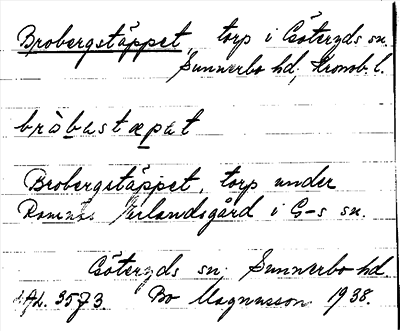 Brobergstäppet, torp i Göteryds sn.
Sunnerbo hd, Kronob. l.
bråbastæpət
Brobergstäppet, torp under
Ramnäs Erlandsgård i G-s sn.
Göteryds sn, Sunnerbo hd.
3573. Bo Magnusson 1938.